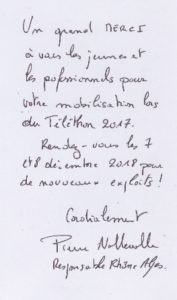 Un grand MERCI
à vous les jeunes et
les pofessionnels pour
votre mobilisation lors
du Téléthon 2017.
Rendez-vous les 7
et 8 décembre 2018 pour
de nouveaux exploits !
Cordialement
Pierre
Responsable Rhône Alpes.